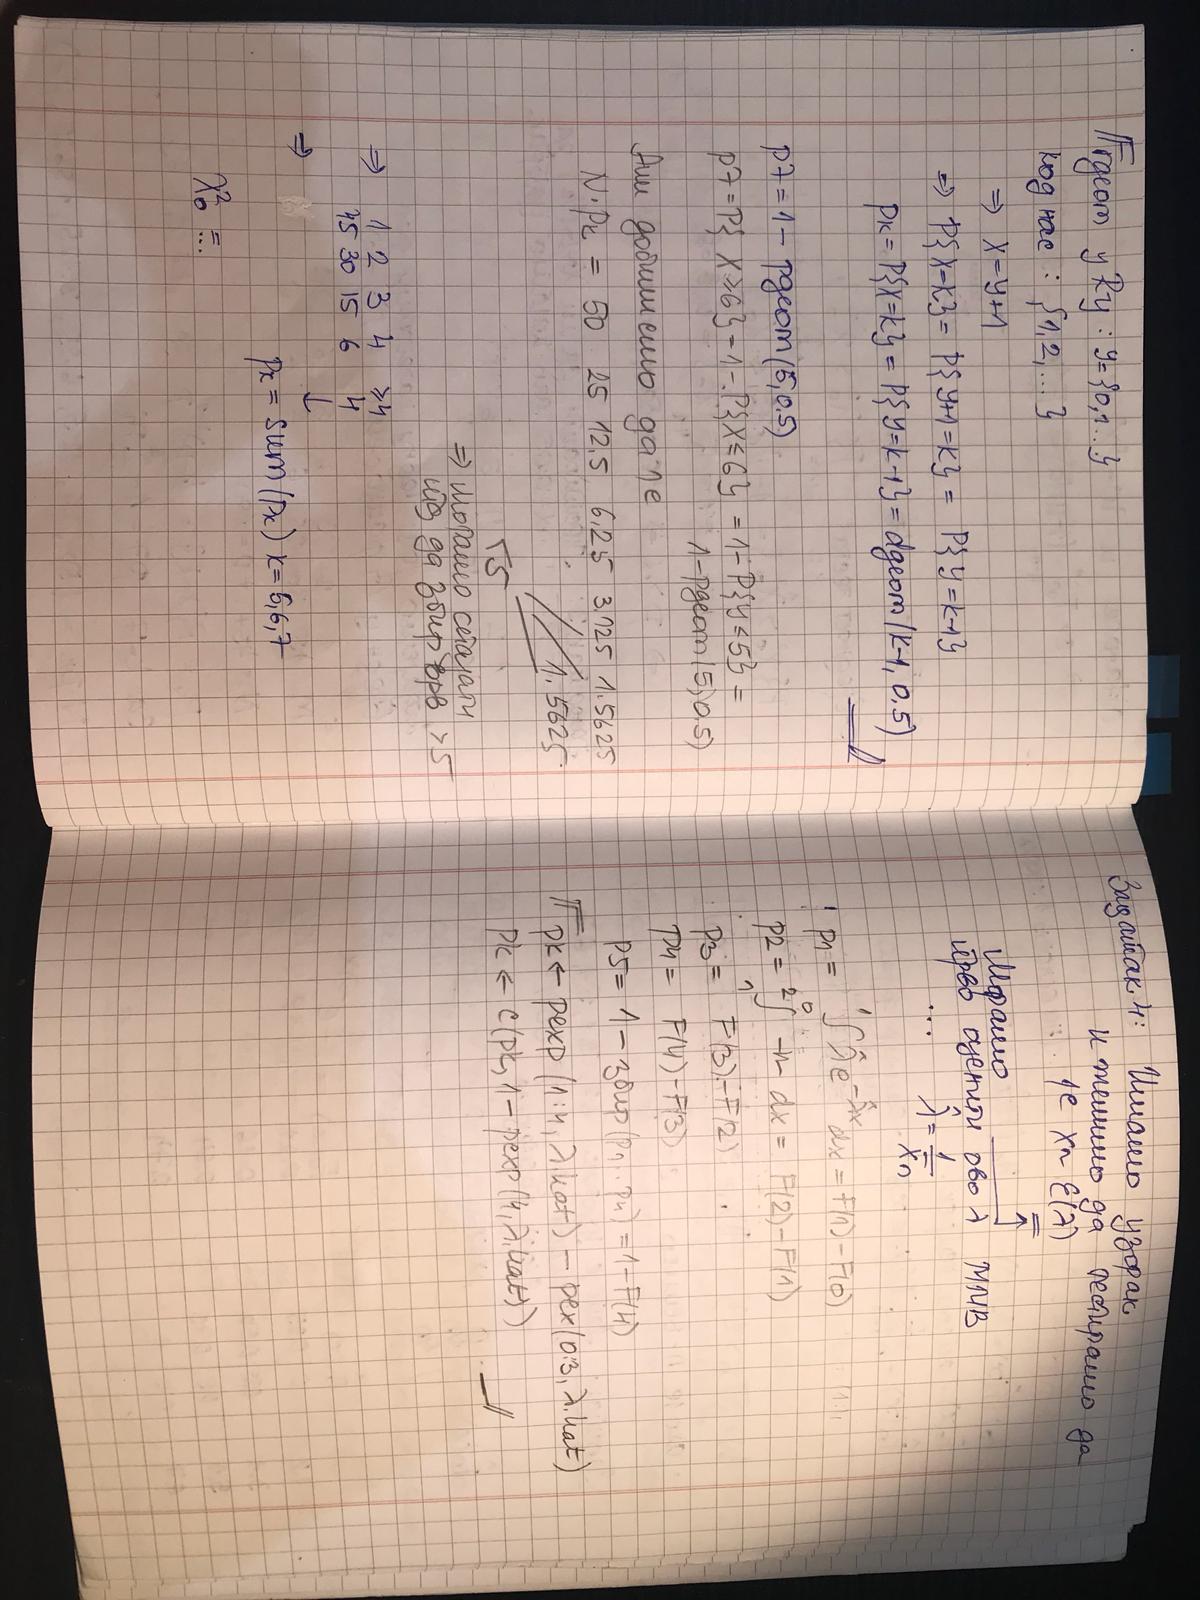 геом у R у : y={0,1...}
код нас : {1,2,...}
⇒ X=y+1
⇒ P{X=k} = P{y+1=k} = P{y=k-1}
pk = P{X=k} = P{y=k-1} = dgeom(k-1, 0,5)
p7 = 1 - pgeom(5,0.5)
p7 = P{X>6} = 1 - P{X≤6} = 1 - P{y≤5} =
1 - pgeom(5,0.5)
Али добили смо да је
N·pk = 50 25 12,5 6,25 3.125 1.5625
1.5625
<5
⇒ морамо спајати
да збир буде >5
⇒ 1 2 3 4 >4
45 30 15 6 4
↓
pk = sum(pk) k=5,6,7
⇒
χ₀² = ...
Задатак 4: Имамо узорак
и желимо да тестирамо да
је Xn ~ ε(λ)
Морамо
прво оценити ово λ ММВ
... λ̂ = 1/X̄n
p1 = ₀∫¹ λ̂e^(-λ̂x) dx = F(1) - F(0)
p2 = ₁∫² -||- dx = F(2) - F(1)
p3 = F(3) - F(2)
p4 = F(4) - F(3)
p5 = 1 - збир(p1..p4) = 1 - F(4)
pk ← pexp(1:4, λ.hat) - pex(0:3, λ.hat)
pk ← c(pk, 1 - pexp(4, λ.hat))